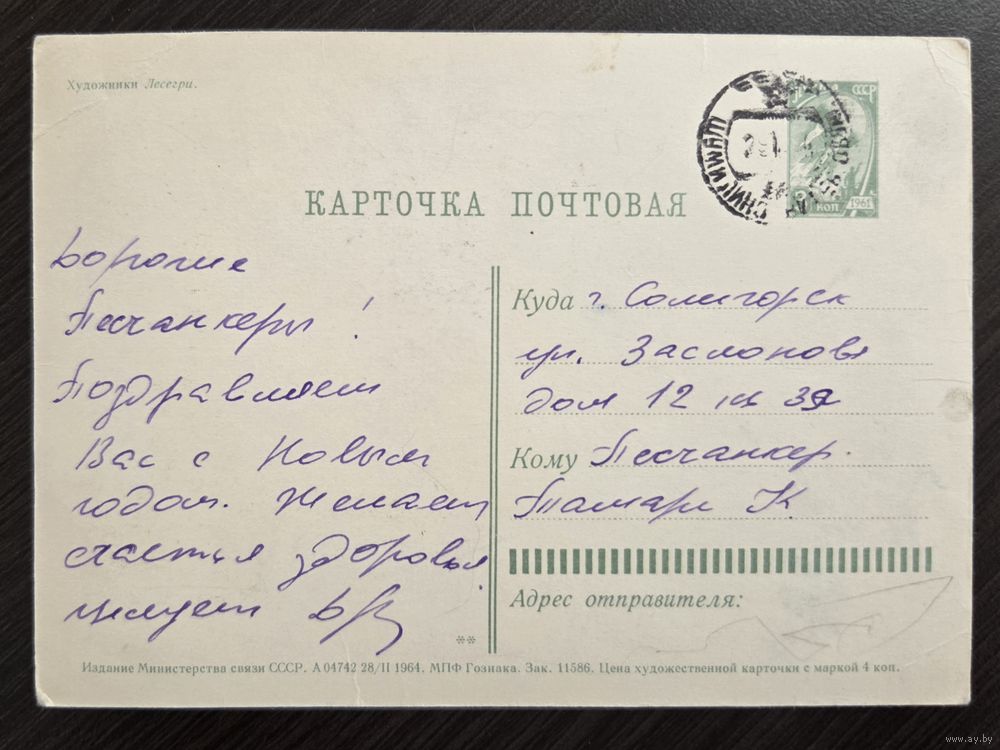 Художники Лесегри.
СССР
КОП 1961
КАРТОЧКА ПОЧТОВАЯ
Дорогие
Песчанкеры!
Поздравляем
Вас с Новым
годом. Желаем
счастья здоровья
целуем
**
Куда г. Солигорск
ул. Заслонова
дом 12 кв 39
Кому Песчанкер.
Тамаре К
Адрес отправителя:
Издание Министерства связи СССР. А 04742 28/II 1964. МПФ Гознака. Зак. 11586. Цена художественной карточки с маркой 4 коп.
www.ay.by